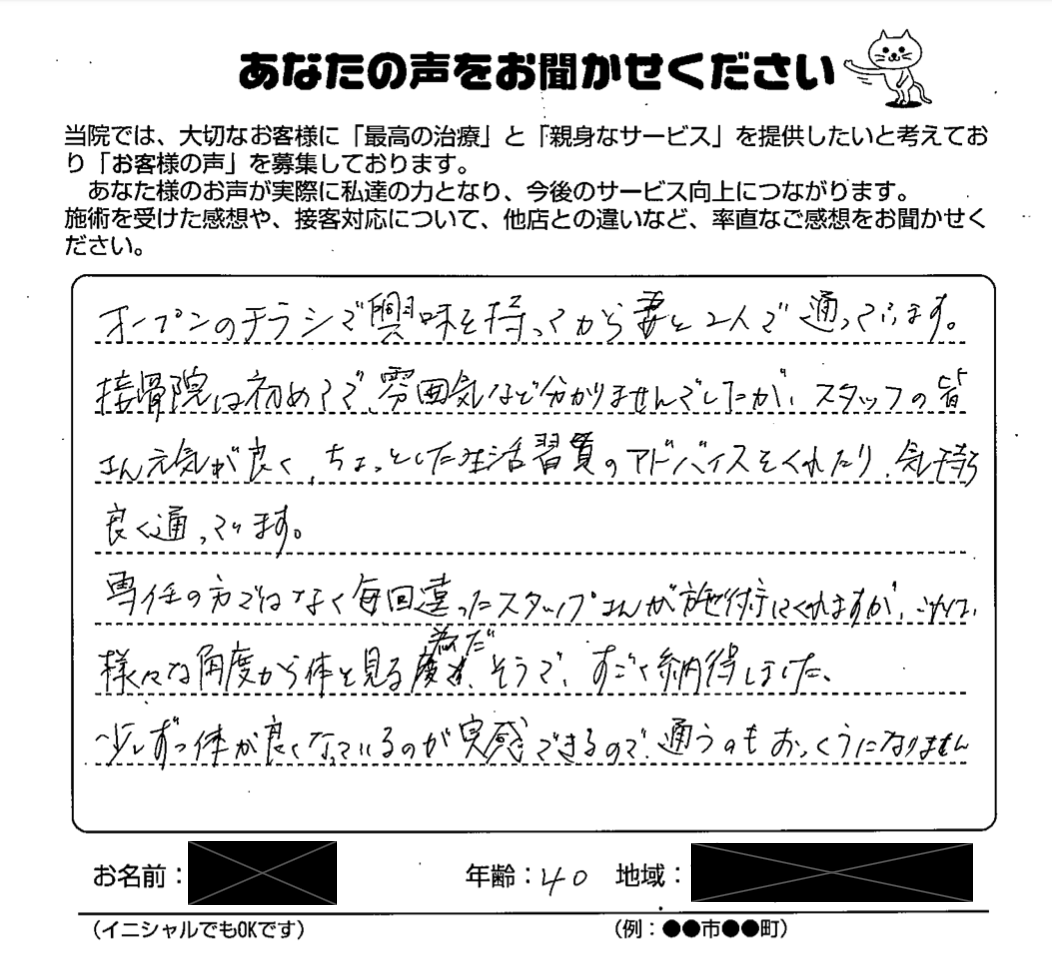 あなたの声をお聞かせください
当院では、大切なお客様に「最高の治療」と「親身なサービス」を提供したいと考えてお
り「お客様の声」を募集しております。
あなた様のお声が実際に私達の力となり、今後のサービス向上につながります。
施術を受けた感想や、接客対応について、他店との違いなど、率直なご感想をお聞かせく
ださい。
オープンのチラシで興味を持ってから妻と2人で通っています。
接骨院は初めてで、雰囲気など分かりませんでしたが、スタッフの皆
さん元気が良く、ちょっとした生活習慣のアドバイスをくれたり、気持ち
良く通っています。
専任の方ではなく毎回違ったスタッフさんが施術してくれますが、これは、
様々な角度から体を見る為だ、そうで、すごく納得しました。
少しずつ体が良くなっているのが実感できるので、通うのもおっくうになりません
お名前：
年齢：40
地域：
（イニシャルでもOKです）
（例：●●市●●町）